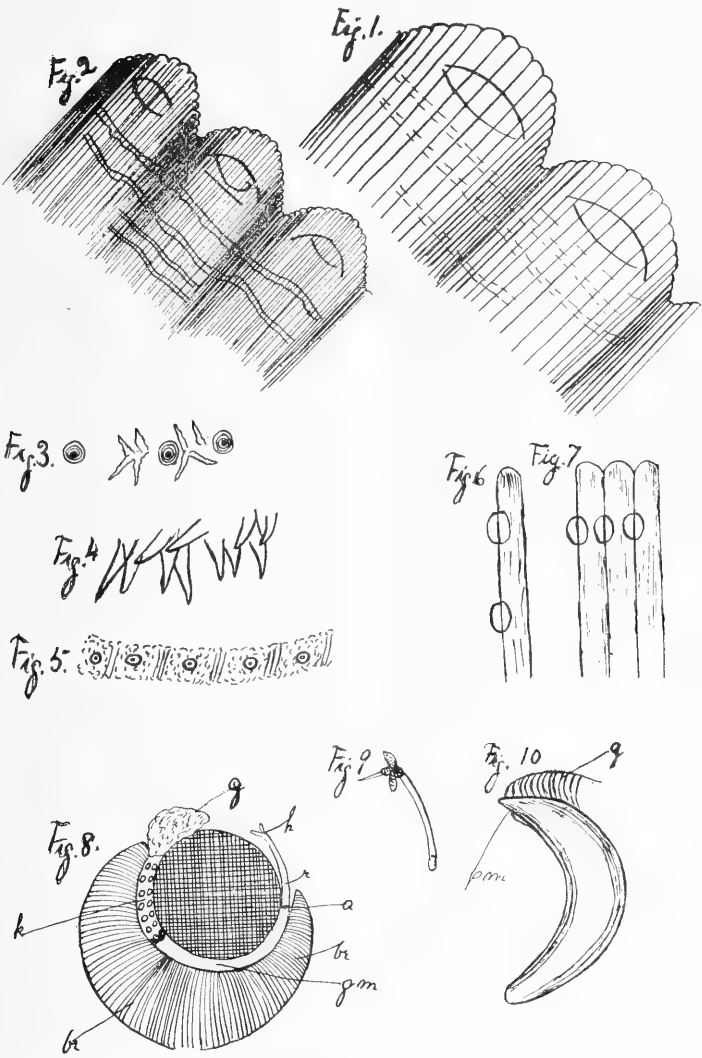 Fig. 1.
Fig. 2
Fig. 3.
Fig. 4
Fig. 5.
Fig 6
Fig. 7
Fig. 8.
g
h
r
a
br
g m
k
br
Fig 9
Fig. 10
g